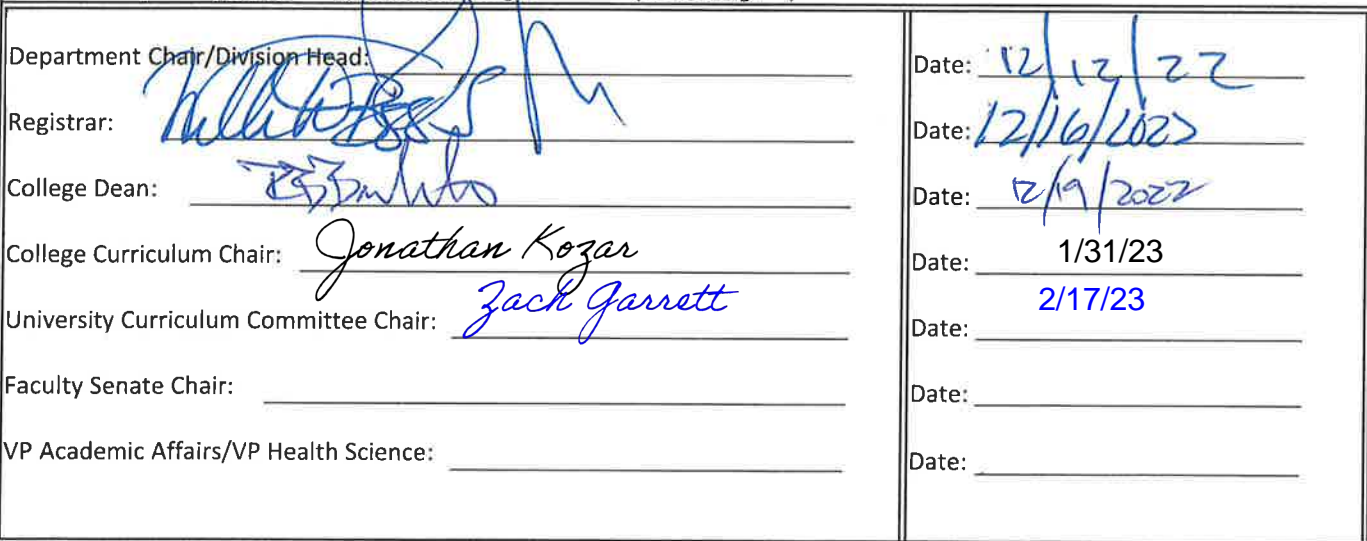 Department Chair/Division Head: Date: 12/12/22
Registrar: Date: 12/16/2022
College Dean: Date: 12/19/2022
College Curriculum Chair: Jonathan Kozar Date: 1/31/23
University Curriculum Committee Chair: Zach Garrett Date: 2/17/23
Faculty Senate Chair: Date:
VP Academic Affairs/VP Health Science: Date: